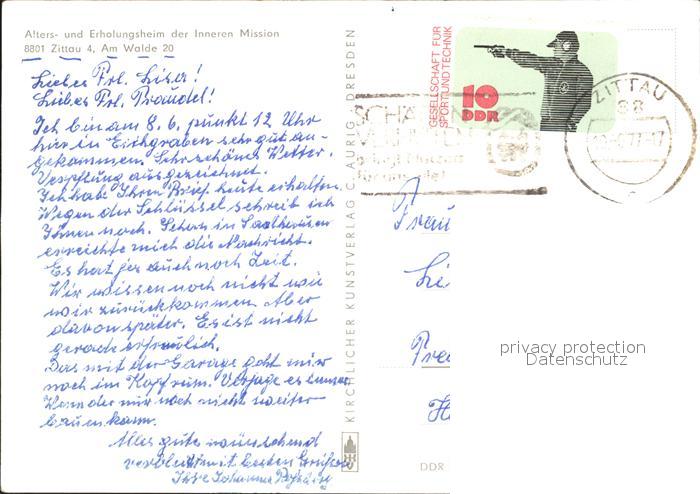 Alters- und Erholungsheim der Inneren Mission
8801 Zittau 4, Am Walde 20
Liebes Frl. Lisa!
Liebes Frl. Traudel!
Ich bin am 8. 6. punkt 12 Uhr
hier in Eichgraben sehr gut an-
gekommen. Sehr schönes Wetter.
Verpflung ausgezeichnet.
Ich hab Ihren Brief heute erhalten
Wegen der Schlüssel schreib ich
Ihnen noch. Schon in
erreichte mich die Nachricht.
Es hat ja auch noch Zeit.
Wir wissen noch nicht wie
wir zurückkommen. Aber
davon später. Es ist nicht
gerade erfreulich.
Das mit der Garage geht mir
noch im Kopf rum.
Wenn der nur noch nicht weiter
bauen kann.
Alles gute wünschend
verbleibt mit besten Grüßen
Ihre Johanna
KIRCHLICHER KUNSTVERLAG C. AURIG, DRESDEN
GESELLSCHAFT FÜR
SPORT UND TECHNIK
10
DDR
ZITTAU
88
77-17
Frau
Li
DDR
privacy protection
Datenschutz